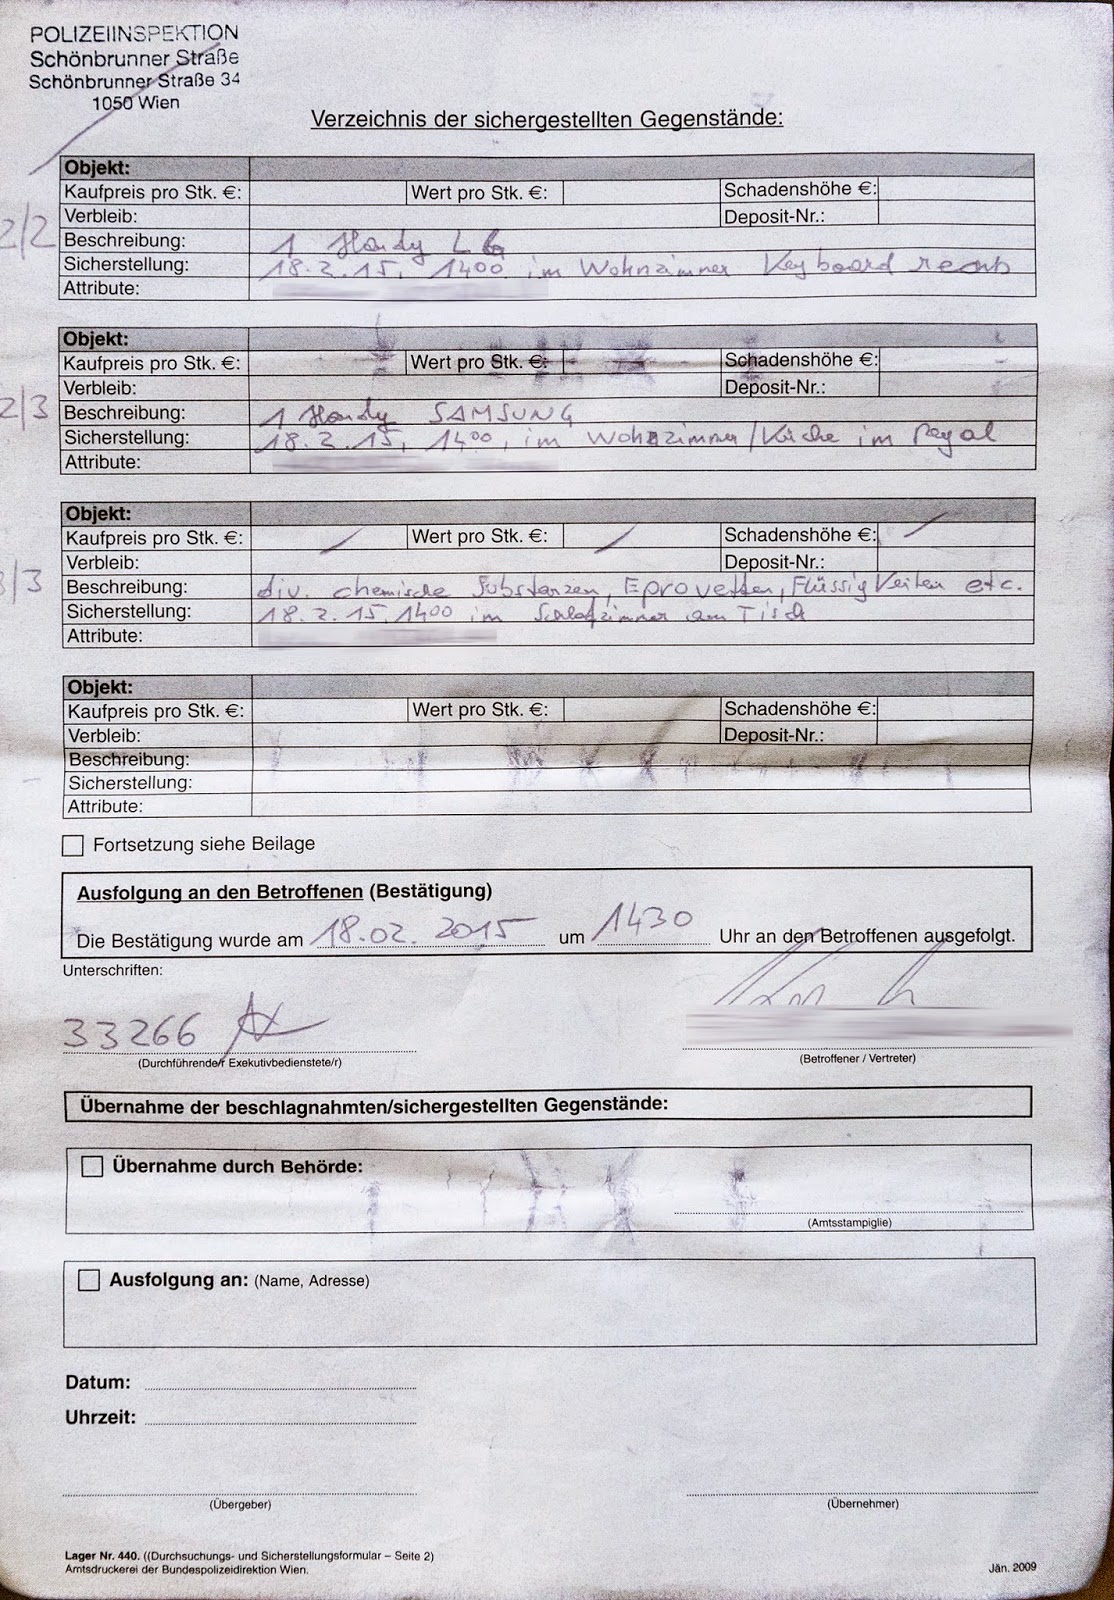 POLIZEIINSPEKTION
Schönbrunner Straße
Schönbrunner Straße 34
1050 Wien
Verzeichnis der sichergestellten Gegenstände:
Objekt:
Kaufpreis pro Stk. €: Wert pro Stk. €: Schadenshöhe €:
Verbleib: Deposit-Nr.:
2/2 Beschreibung: 1 Handy LG
Sicherstellung: 18.2.15, 1400 im Wohnzimmer Keyboard rechts
Attribute:
Objekt:
Kaufpreis pro Stk. €: Wert pro Stk. €: Schadenshöhe €:
Verbleib: Deposit-Nr.:
2/3 Beschreibung: 1 Handy SAMSUNG
Sicherstellung: 18.2.15, 1400, im Wohnzimmer/Küche im Regal
Attribute:
Objekt:
Kaufpreis pro Stk. €: Wert pro Stk. €: Schadenshöhe €:
Verbleib: Deposit-Nr.:
3/3 Beschreibung: div. chemische Substanzen, Eprovetten, Flüssigkeiten etc.
Sicherstellung: 18.2.15, 1400 im Schlafzimmer am Tisch
Attribute:
Objekt:
Kaufpreis pro Stk. €: Wert pro Stk. €: Schadenshöhe €:
Verbleib: Deposit-Nr.:
Beschreibung:
Sicherstellung:
Attribute:
Fortsetzung siehe Beilage
Ausfolgung an den Betroffenen (Bestätigung)
Die Bestätigung wurde am 18.02.2015 um 1430 Uhr an den Betroffenen ausgefolgt.
Unterschriften:
33266
(Durchführende/r Exekutivbedienstete/r) (Betroffener / Vertreter)
Übernahme der beschlagnahmten/sichergestellten Gegenstände:
Übernahme durch Behörde:
(Amtsstampiglie)
Ausfolgung an: (Name, Adresse)
Datum:
Uhrzeit:
(Übergeber) (Übernehmer)
Lager Nr. 440. ((Durchsuchungs- und Sicherstellungsformular – Seite 2)
Amtsdruckerei der Bundespolizeidirektion Wien. Jän. 2009